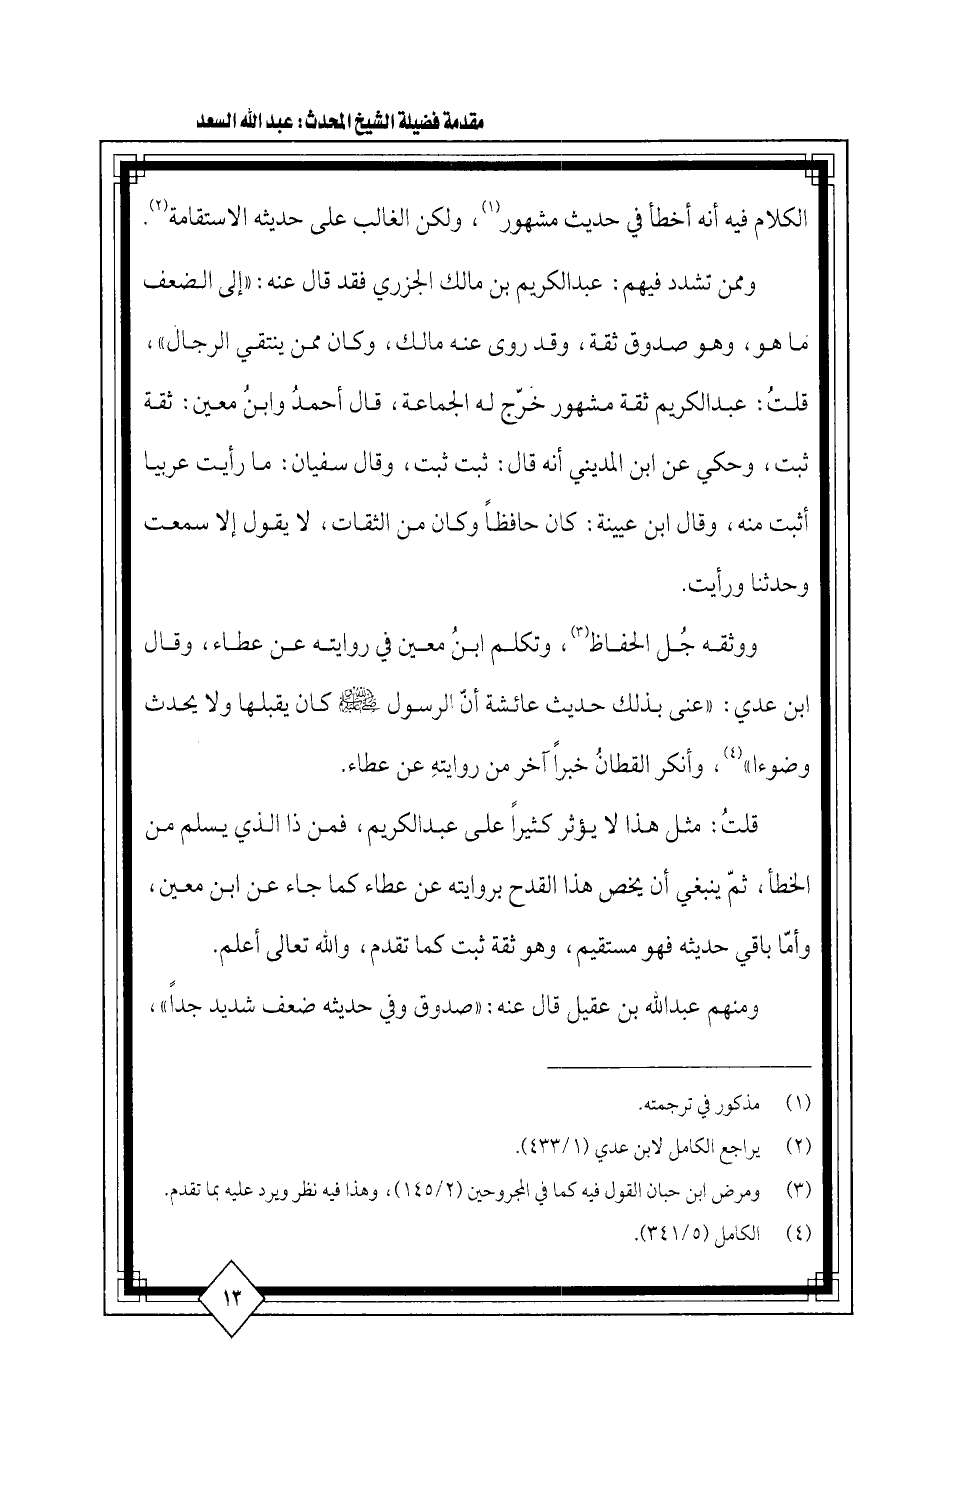 مقدمة فضيلة الشيخ المحدث: عبد الله السعد
الكلام فيه أنه أخطأ في حديث مشهور(١)، ولكن الغالب على حديثه الاستقامة(٢).
وممن تشدد فيهم: عبدالكريم بن مالك الجزري فقد قال عنه: «إلى الضعف
ما هو، وهو صدوق ثقة، وقد روى عنه مالك، وكان ممن ينتقي الرجال»،
قلتُ: عبدالكريم ثقة مشهور خرّج له الجماعة، قال أحمدُ وابنُ معين: ثقة
ثبت، وحكي عن ابن المديني أنه قال: ثبت ثبت، وقال سفيان: ما رأيت عربيا
أثبت منه، وقال ابن عيينة: كان حافظاً وكان من الثقات، لا يقول إلا سمعت
وحدثنا ورأيت.
ووثقه جُل الحفاظ(٣)، وتكلم ابنُ معين في روايته عن عطاء، وقال
ابن عدي: «عنى بذلك حديث عائشة أنّ الرسول ﷺ كان يقبلها ولا يحدث
وضوءا»(٤)، وأنكر القطانُ خبراً آخر من روايتهِ عن عطاء.
قلتُ: مثل هذا لا يؤثر كثيراً على عبدالكريم، فمن ذا الذي يسلم من
الخطأ، ثمّ ينبغي أن يخص هذا القدح بروايته عن عطاء كما جاء عن ابن معين،
وأمّا باقي حديثه فهو مستقيم، وهو ثقة ثبت كما تقدم، والله تعالى أعلم.
ومنهم عبدالله بن عقيل قال عنه: «صدوق وفي حديثه ضعف شديد جداً»،
(١) مذكور في ترجمته.
(٢) يراجع الكامل لابن عدي (٤٣٣/١).
(٣) ومرض ابن حبان القول فيه كما في المجروحين (١٤٥/٢)، وهذا فيه نظر ويرد عليه بما تقدم.
(٤) الكامل (٣٤١/٥).
١٣